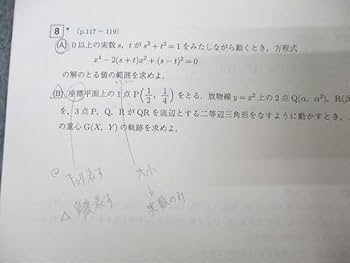 8 * [p.117～119]
(A) 0以上の実数 s, t が s² + t² = 1 をみたしながら動くとき，方程式
x⁴ − 2(s + t)x² + (s − t)² = 0
の解のとる値の範囲を求めよ．
(B) 座標平面上の1点 P(1/2, 1/4) をとる．放物線 y = x² 上の2点 Q(α, α²), R(β
を，3点 P，Q，R が QR を底辺とする二等辺三角形をなすように動かすとき，
の重心 G(X, Y) の軌跡を求めよ．
大小
実数